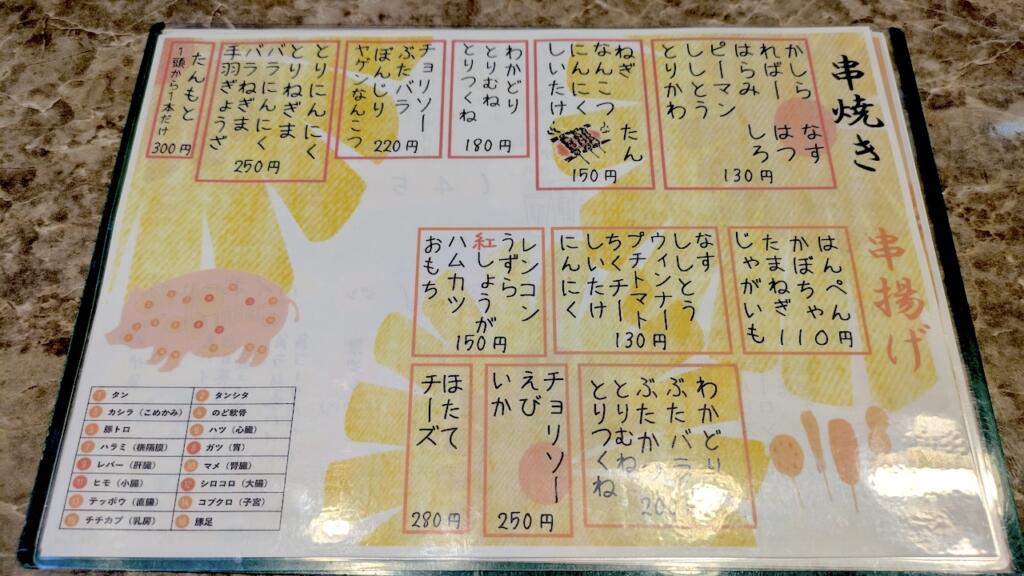 串焼き
かしら
ればー
はらみ
ピーマン
ししとう
とりかわ
なす
はつ
しろ
130円
ねぎ
なんこつ
にんにく
しいたけ
たん
150円
わかどり
とりむね
とりつくね
180円
チョリソー
ぶたバラ
ぼんじり
ヤゲンなんこつ
220円
とりにんにく
とりねぎま
バラにんにく
バラねぎま
手羽ぎょうざ
250円
たんもと
1頭から1本だけ
300円
串揚げ
はんぺん
かぼちゃ
たまねぎ
じゃがいも
110円
なす
ししとう
ウィンナー
プチトマト
ちくチー
しいたけ
にんにく
130円
レンコン
うずら
紅しょうが
ハムカツ
おもち
150円
わかどり
ぶたバラ
ぶたか
とりむね
とりつくね
チョリソー
えび
いか
250円
ほたて
チーズ
280円
1 タン
2 タンシタ
3 カシラ（こめかみ）
4 のど軟骨
5 豚トロ
6 ハツ（心臓）
7 ハラミ（横隔膜）
8 ガツ（胃）
9 レバー（肝臓）
10 マメ（腎臓）
11 ヒモ（小腸）
12 シロコロ（大腸）
13 テッポウ（直腸）
14 コブクロ（子宮）
15 チチカブ（乳房）
16 豚足